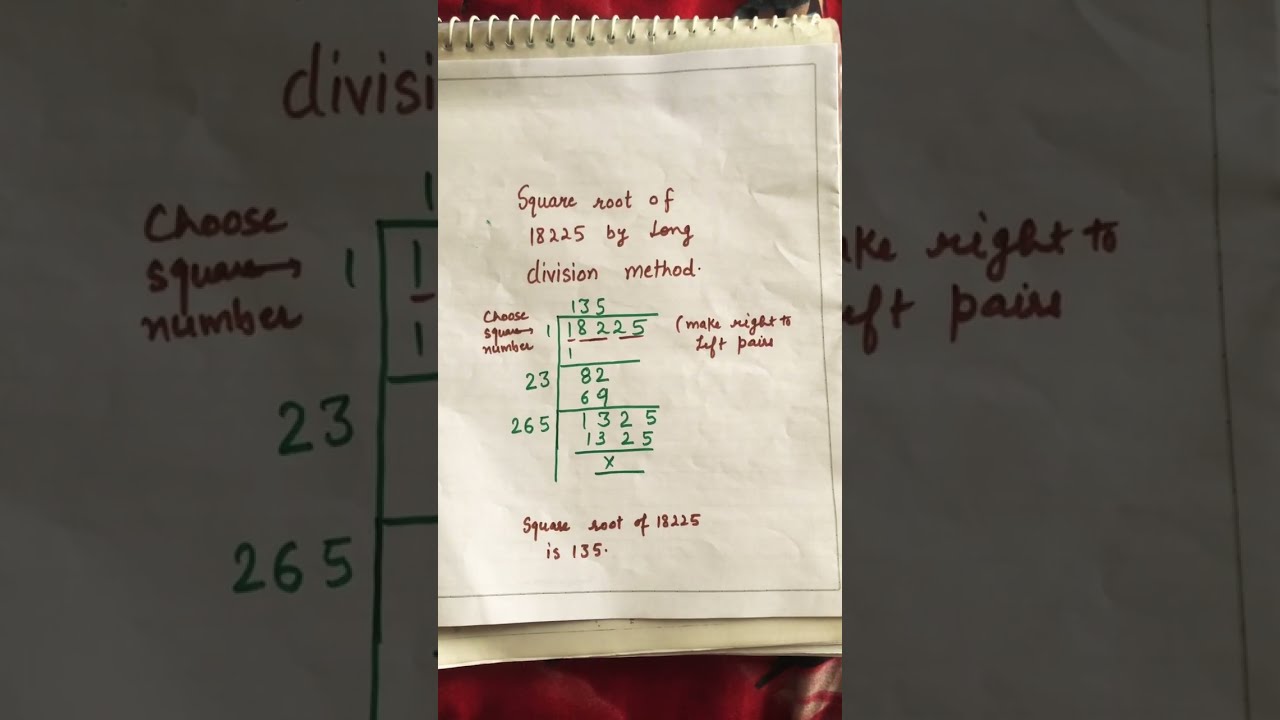 Square root of
18225 by Long
division method.
135
Choose
square→
number
1
18225
(make right to
Left pairs
1
23
82
69
265
1325
1325
x
Square root of 18225
is 135.